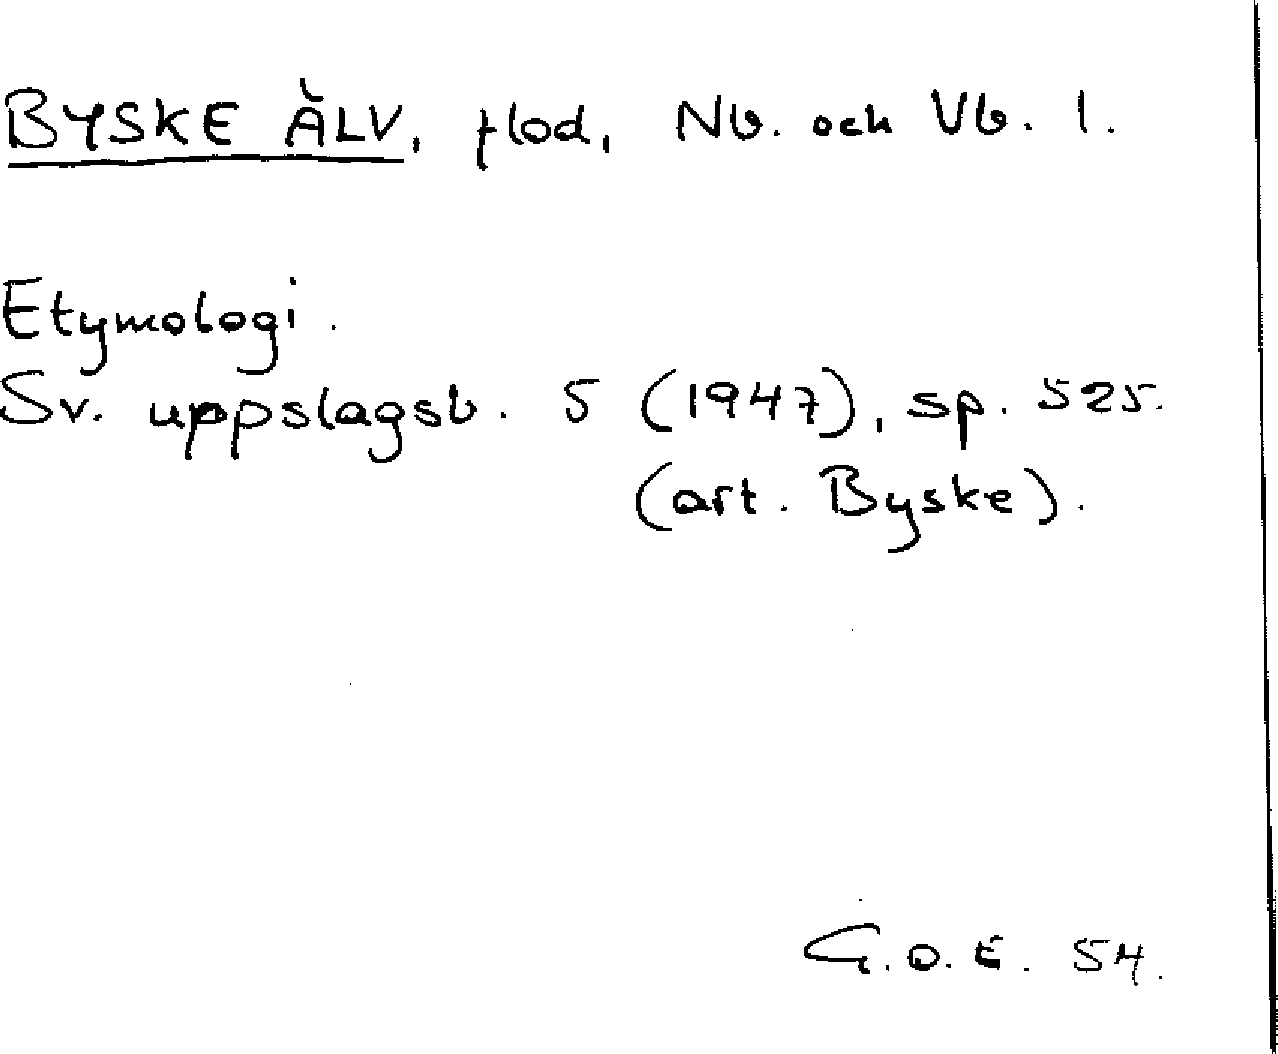 BYSKE ÄLV, flod, Nb. och Vb. l.
Etymologi.
Sv. uppslagsb. 5 (1947), sp. 525.
(art. Byske).
G.O.E. 54.